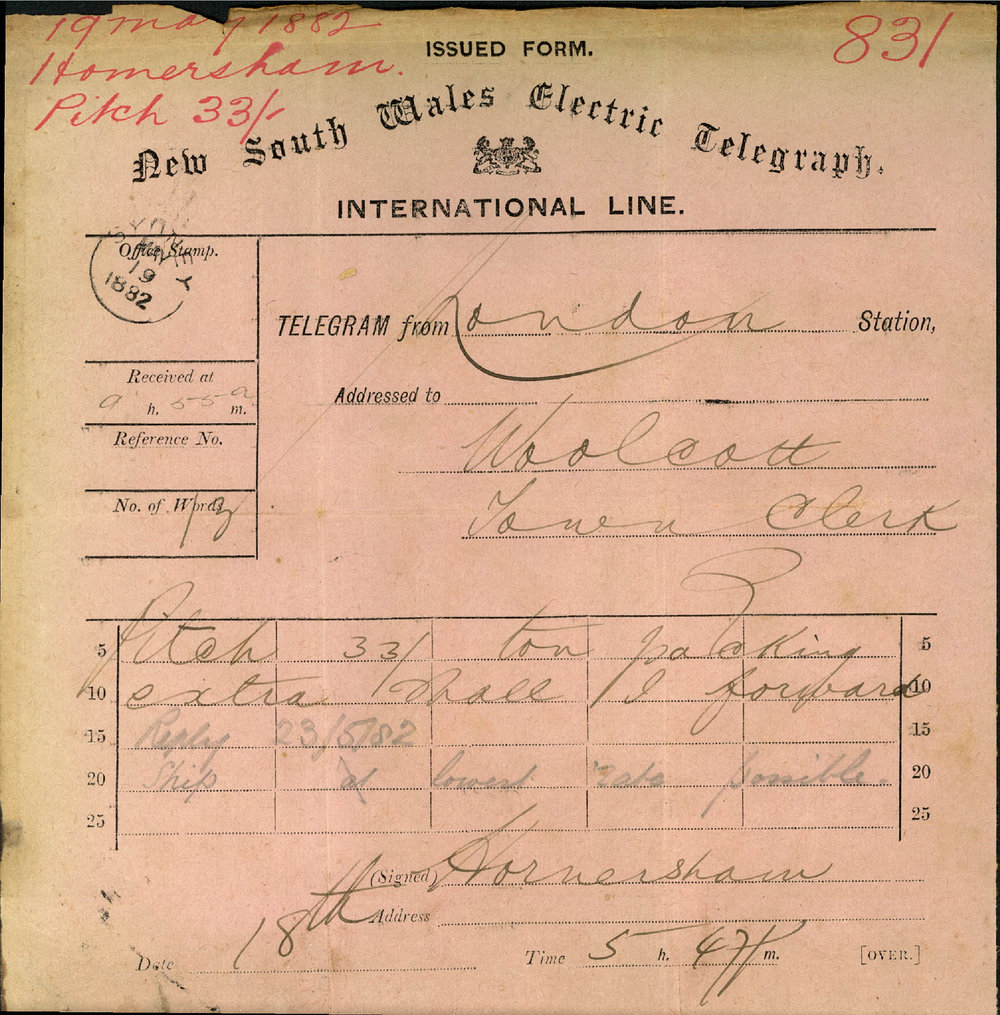 19 May 1882
Homersham.
Pitch 33/-
831
ISSUED FORM.
New South Wales Electric Telegraph.
INTERNATIONAL LINE.
Office Stamp.
SYDNEY
19
1882
TELEGRAM from London Station,
Received at
9 h. 55 a m.
Addressed to
Reference No.
Woolcott
No. of Words
13
Town Clerk
5 Pitch 33/ ton packing 5
10 extra Shall I forward 10
15 Reply 23/5/82 15
20 Ship at lowest rate possible. 20
25 25
(Signed) Hornersham
Address
Date 18th Time 5 h. 47 p m. [OVER.]